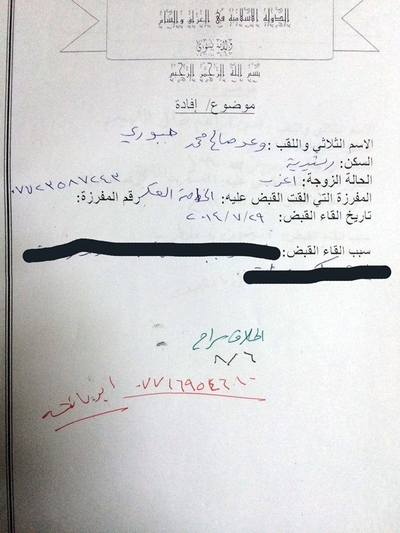 الدولة الاسلامية في العراق والشام
ولاية نينوى
بسم الله الرحمن الرحيم
موضوع/ إفادة
الاسم الثلاثي واللقب: وعد صالح محمد جبوري
السكن: رشيدية
الحالة الزوجة: اعزب
المفرزة التي القت القبض عليه: رقم المفرزة: ٠٧٧٢٣٥٨٧٢٤٣
تاريخ القاء القبض: ٢٠١٤/٧/٢٩
سبب القاء القبض:
اطلاق سراح
٨/٦